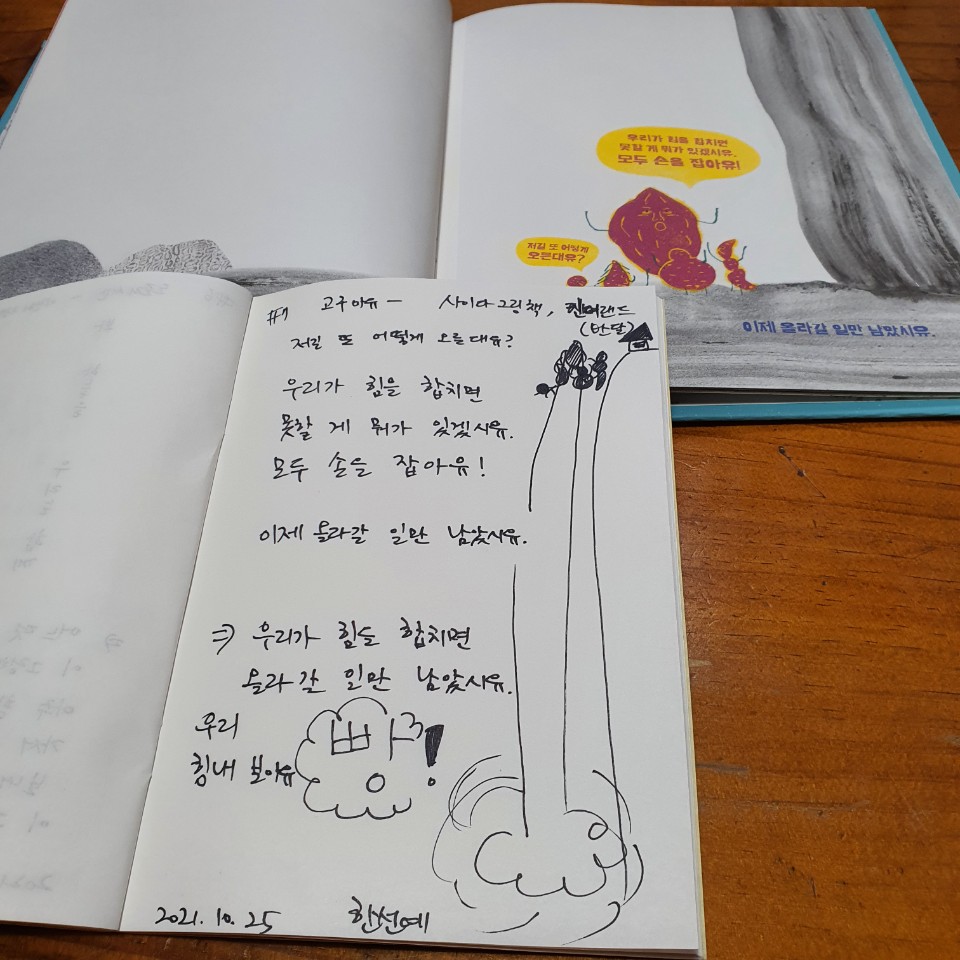 우리가 힘을 합치면
못할 게 뭐가 있겠시유.
모두 손을 잡아유!
저길 또 어떻게
오른대유?
이제 올라갈 일만 남았시유.
#1 고구마유 - 사이다 그림책, 킨더랜드
(반달)
저길 또 어떻게 오른대유?
우리가 힘을 합치면
못할 게 뭐가 있겠시유.
모두 손을 잡아유!
이제 올라갈 일만 남았시유.
⇒ 우리가 힘을 합치면
올라갈 일만 남았시유.
우리
힘내 보아유
빵!
2021. 10. 25 한선예